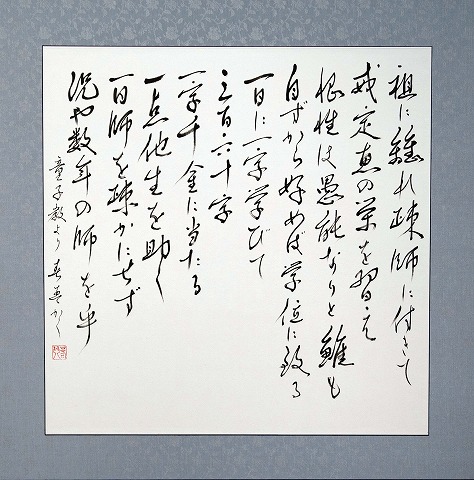 祖に離れ疎師に付きて
戒定恵の業を習え
根性は愚鈍なりと雖も
自ずから好めば学位に致る
一日に一字学びて
三百六十字
一字千金に当たる
一点他生を助く
一日師を疎かにせず
況や数年の師を乎
童子教より かく